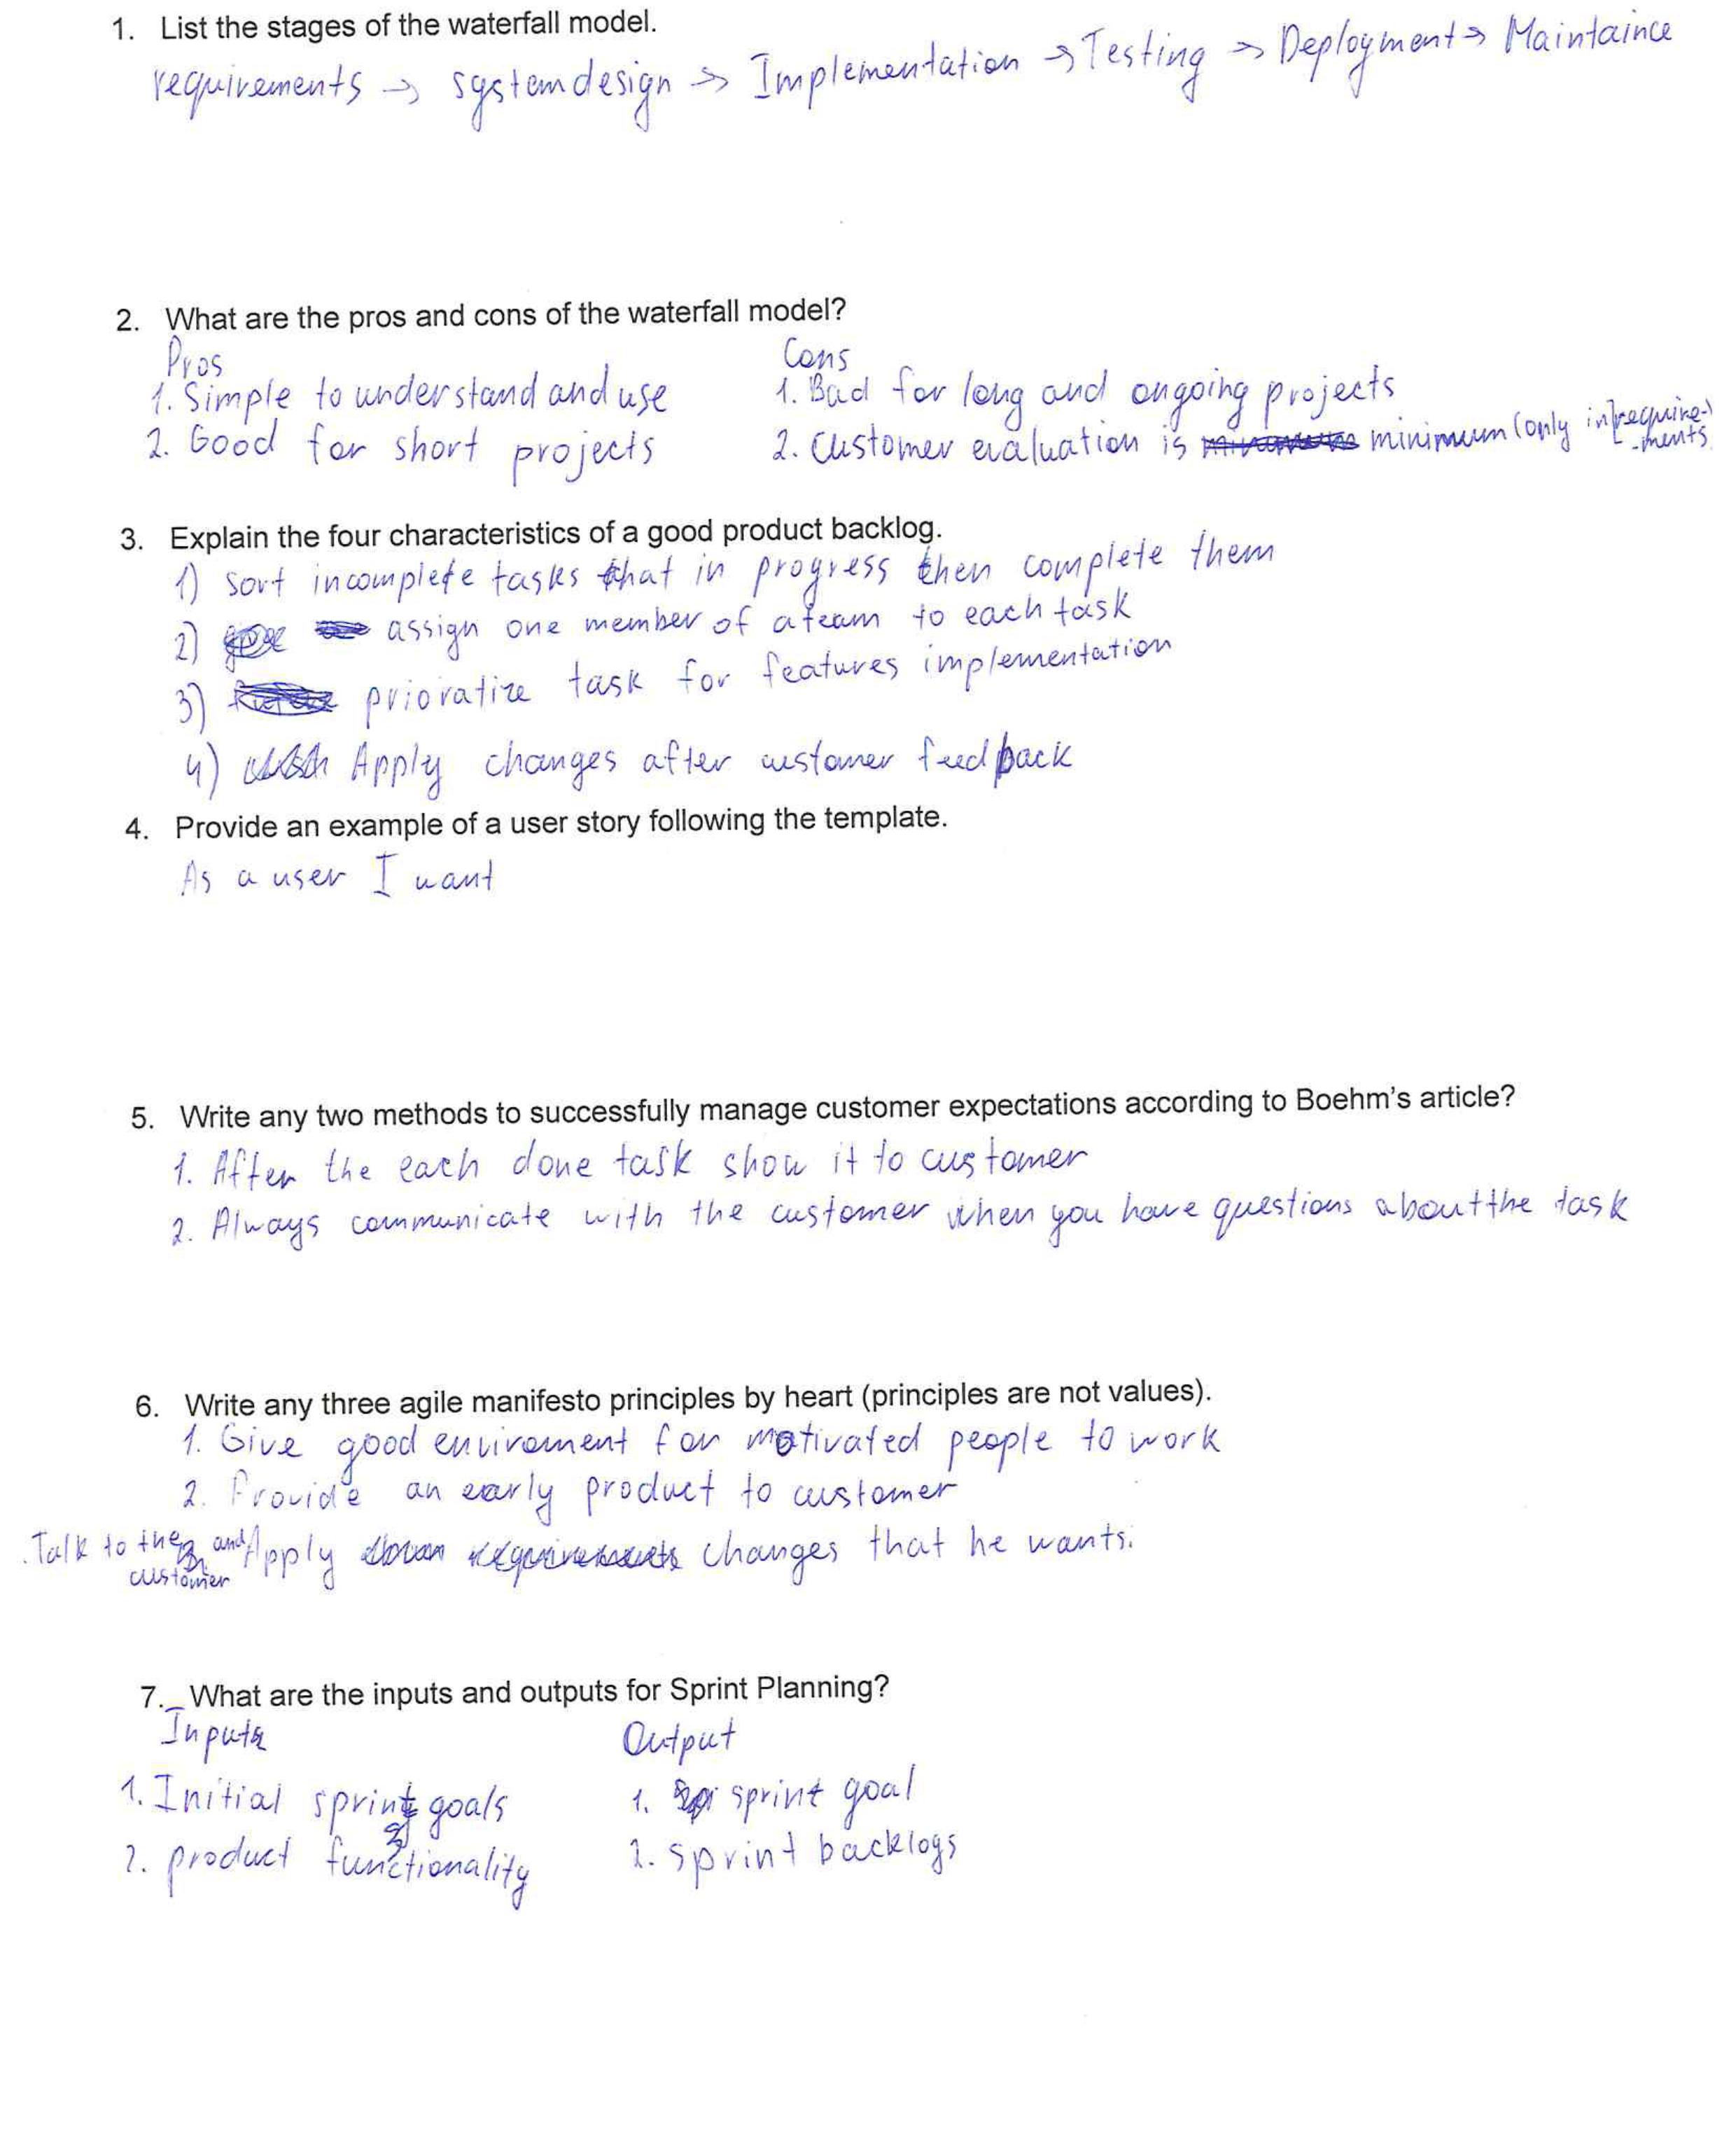 1. List the stages of the waterfall model.
requirements → system design → Implementation → Testing → Deployment → Maintaince
2. What are the pros and cons of the waterfall model?
Pros Cons
1. Simple to understand and use 1. Bad for long and ongoing projects
2. Good for short projects 2. Customer evaluation is minimum (only in require-
-ments
3. Explain the four characteristics of a good product backlog.
1) sort incomplete tasks that in progress then complete them
2) assign one member of a team to each task
3) prioratize task for features implementation
4) Apply changes after customer feedback
4. Provide an example of a user story following the template.
As a user I want
5. Write any two methods to successfully manage customer expectations according to Boehm's article?
1. After the each done task show it to customer
2. Always communicate with the customer when you have questions about the task
6. Write any three agile manifesto principles by heart (principles are not values).
1. Give good enviroment for motivated people to work
2. Provide an early product to customer
Talk to the and Apply changes that he wants.
customer
7. What are the inputs and outputs for Sprint Planning?
Inputs Output
1. Initial sprint goals 1. sprint goal
2. product functionality 2. sprint backlogs